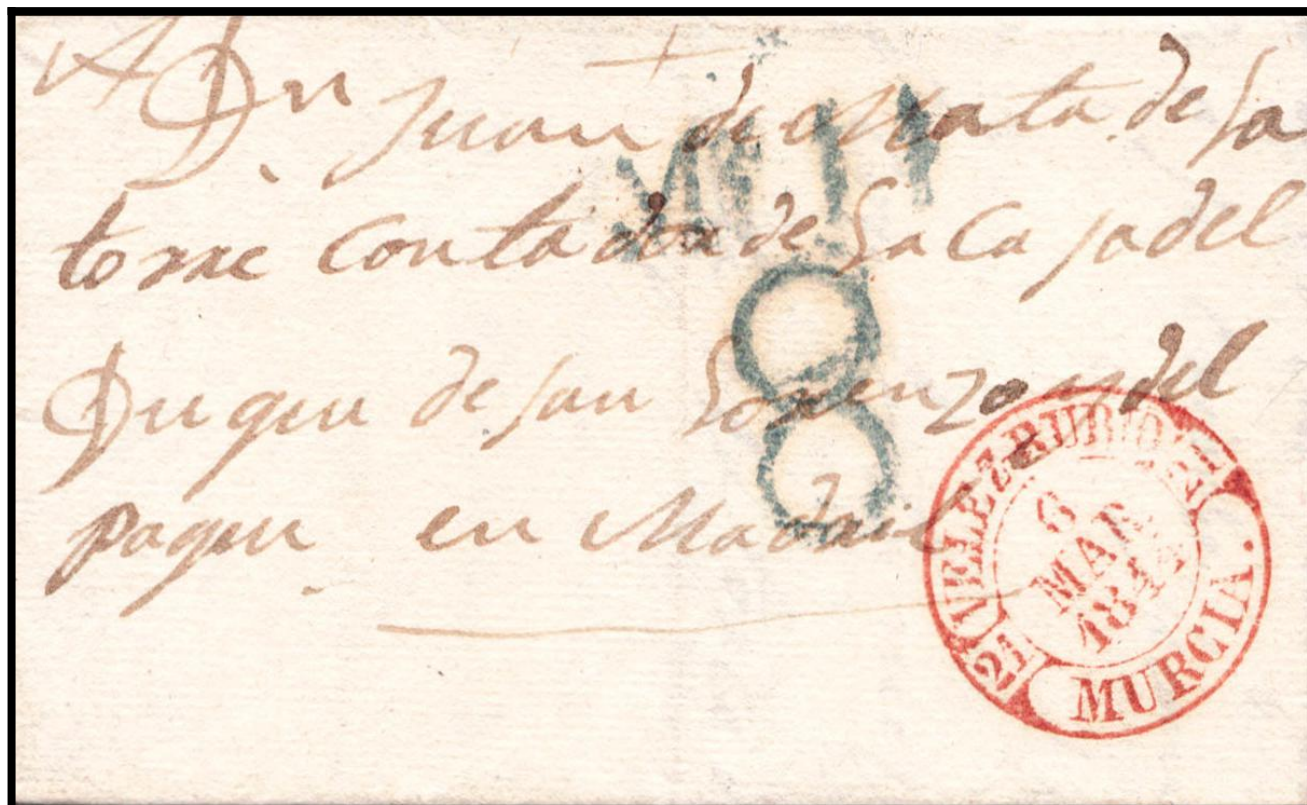 A Dn Juan de Mata de la
torre Contador de la Casa del
Duque de san Lorenzo del
en Madrid
8
8
VELEZ RUBIO
21
6
MAR
184
21
MURCIA.